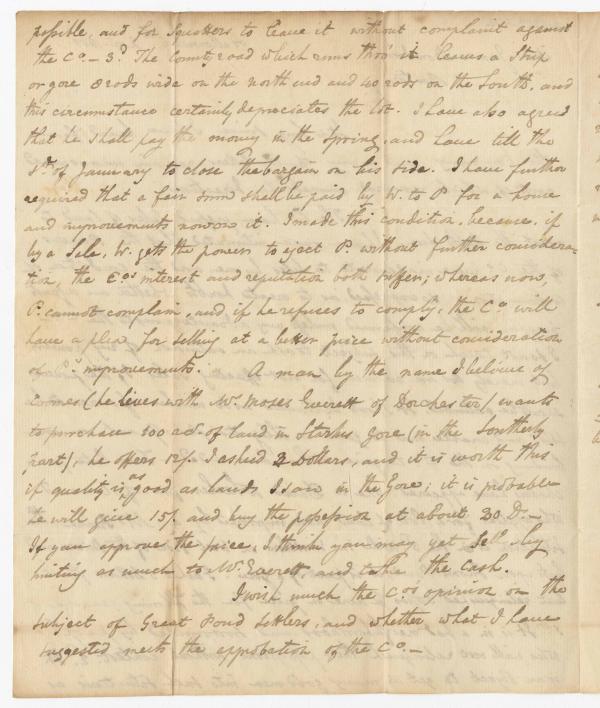 possible, and for Squatters to leave it without complaint against
the Co. – 3d. The County road which runs thro' it leaves a Strip
or gore 8 rods wide on the north end and 40 rods on the South, and
this circumstance certainly depreciates the lot. I have also agreed
that he shall pay the money in the Spring, and have till the
1st. of January to close the bargain on his side. I have further
required that a fair sum shall be paid by W. to P. for a house
and improvements now on it. I made this condition, because, if
by a Sale, W. gets the power to eject P. without further considera-
tion, the Co's interest and reputation both suffer; whereas now,
P. cannot complain, and if he refuses to comply, the Co. will
have a plea for selling at a better price without consideration
of improvements. A man by the name I believe of
(he lives with Mr. Moses Everett of Dorchester) wants
to purchase 100 acs. of land in Starks Gore (in the Southerly
part), he offers 12/. I asked 2 Dollars, and it is worth this
if quality is as good as lands I saw in the Gore; it is probable
he will give 15/. and buy the possession at about 30 D. –
If you approve the price, I think you may yet sell by
hinting as much to Mr. Everett, and take the cash.
I wish much the Co.'s opinion on the
subject of Great Pond Settlers, and whether what I have
suggested meets the approbation of the Co. –